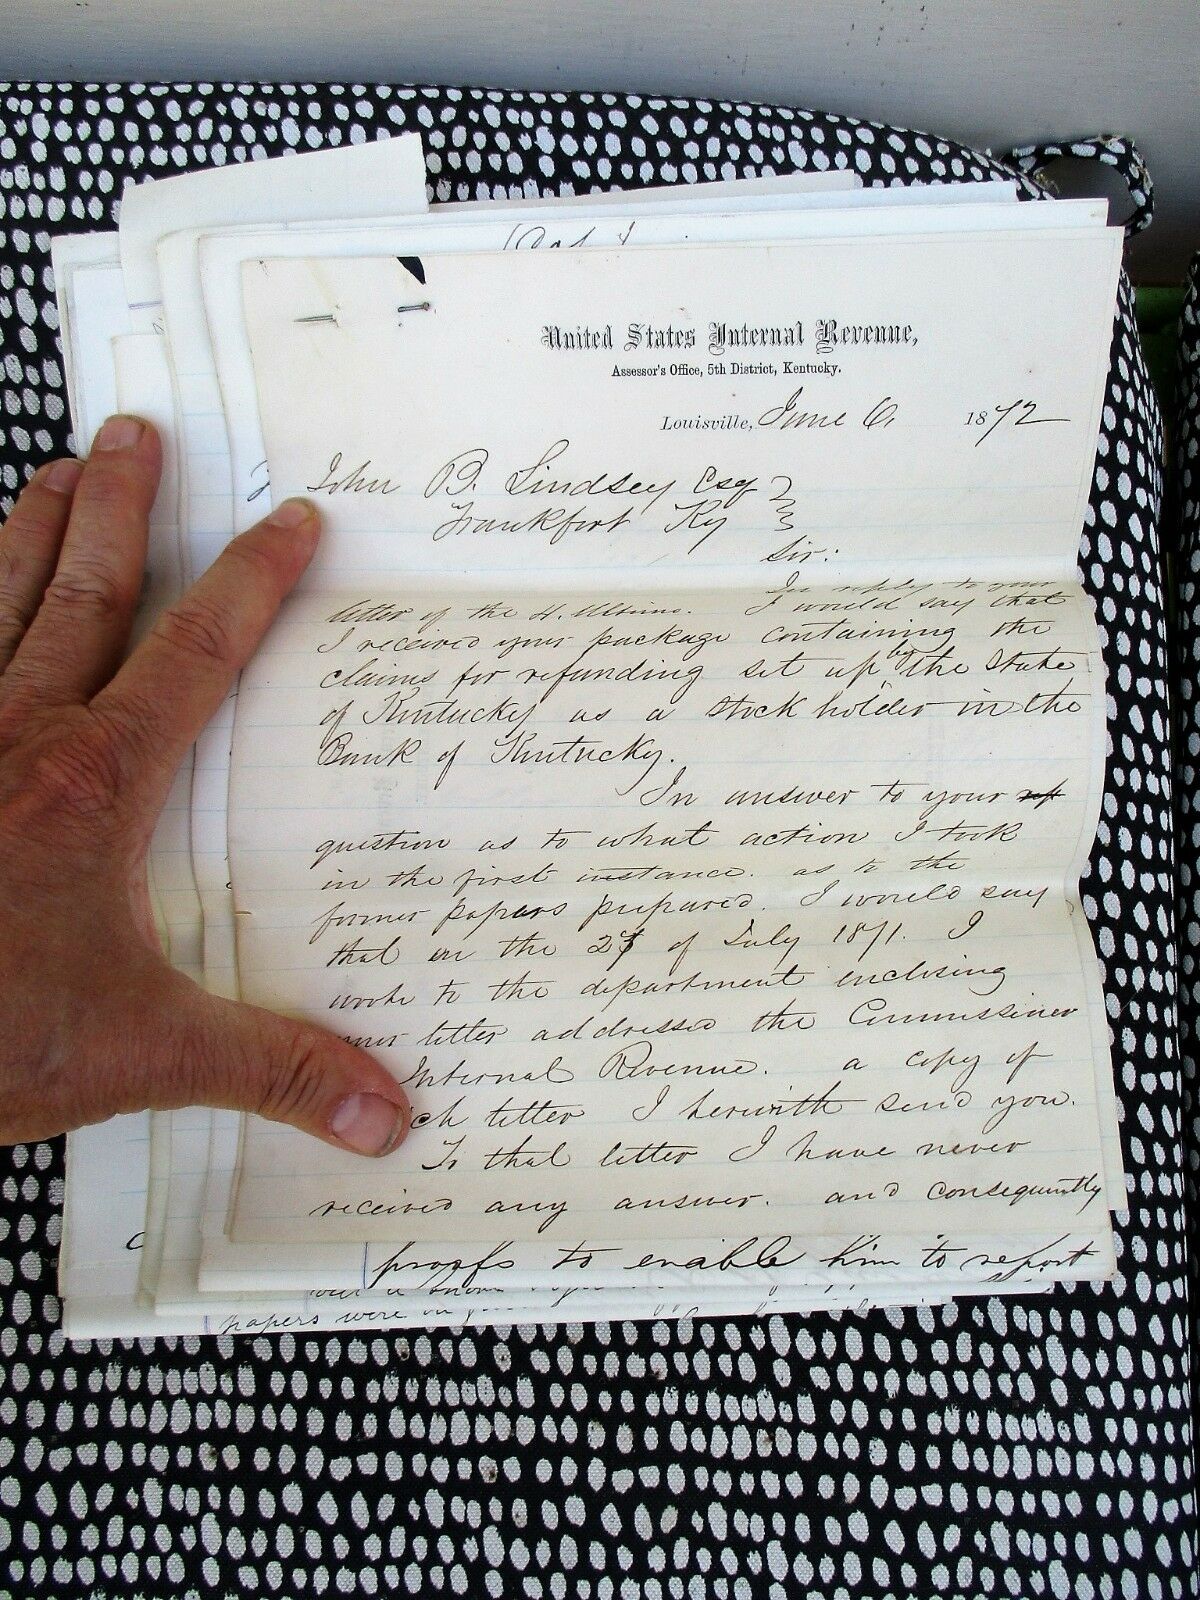 United States Internal Revenue,
Assessor's Office, 5th District, Kentucky.
Louisville, June 6, 1872
John B. Lindsey Esq
Frankfort Ky
Sir:
In reply to your
letter of the 4. Ultimo. I would say that
I received your package containing the
claims for refunding set up by the State
of Kentucky as a stock holder in the
Bank of Kentucky.
In answer to your
question as to what action I took
in the first instance. as to the
former papers prepared. I would say
that on the of July 1871. I
wrote to the department enclosing
letter addressed the Commissioner
Internal Revenue. a copy of
ch letter I herewith send you.
To that letter I have never
received any answer. and consequently
proofs to enable him to report
papers were